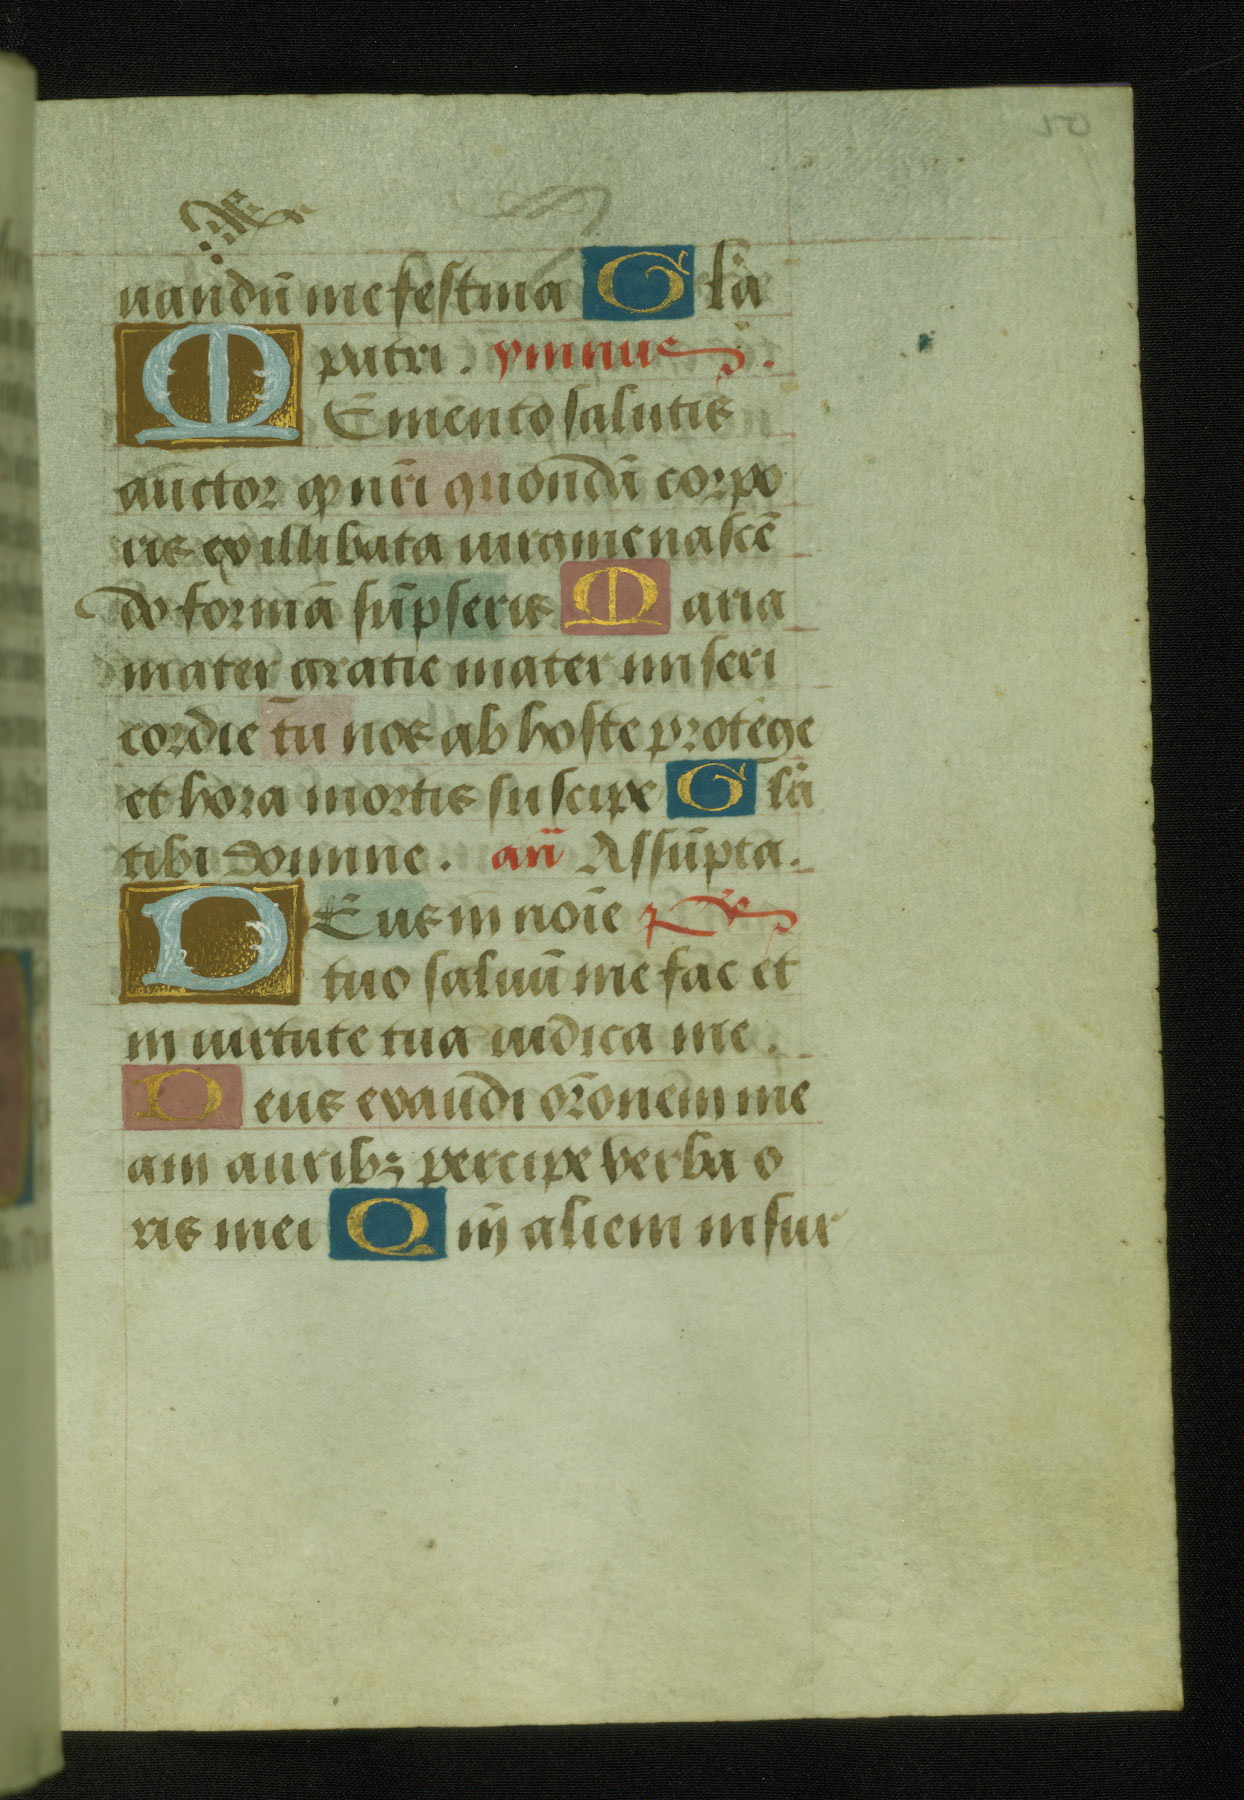 uandū me festina Glā
patri. ymnus.
Memento salutis
auctor qꝫ nr̄i quondā corpo
ris ex illibata uirgine nascē
do formā sūpseris Maria
mater gratie mater miseri
cordie tū nos ab hoste protege
et hora mortis suscipe Glā
tibi domine. añ Assūpta.
Deus in noīe ps
tuo saluū me fac et
in uirtute tua iudica me.
Deus exaudi or̄onem me
am auribꝫ percipe verba o
ris mei Qm̄ aliem insur